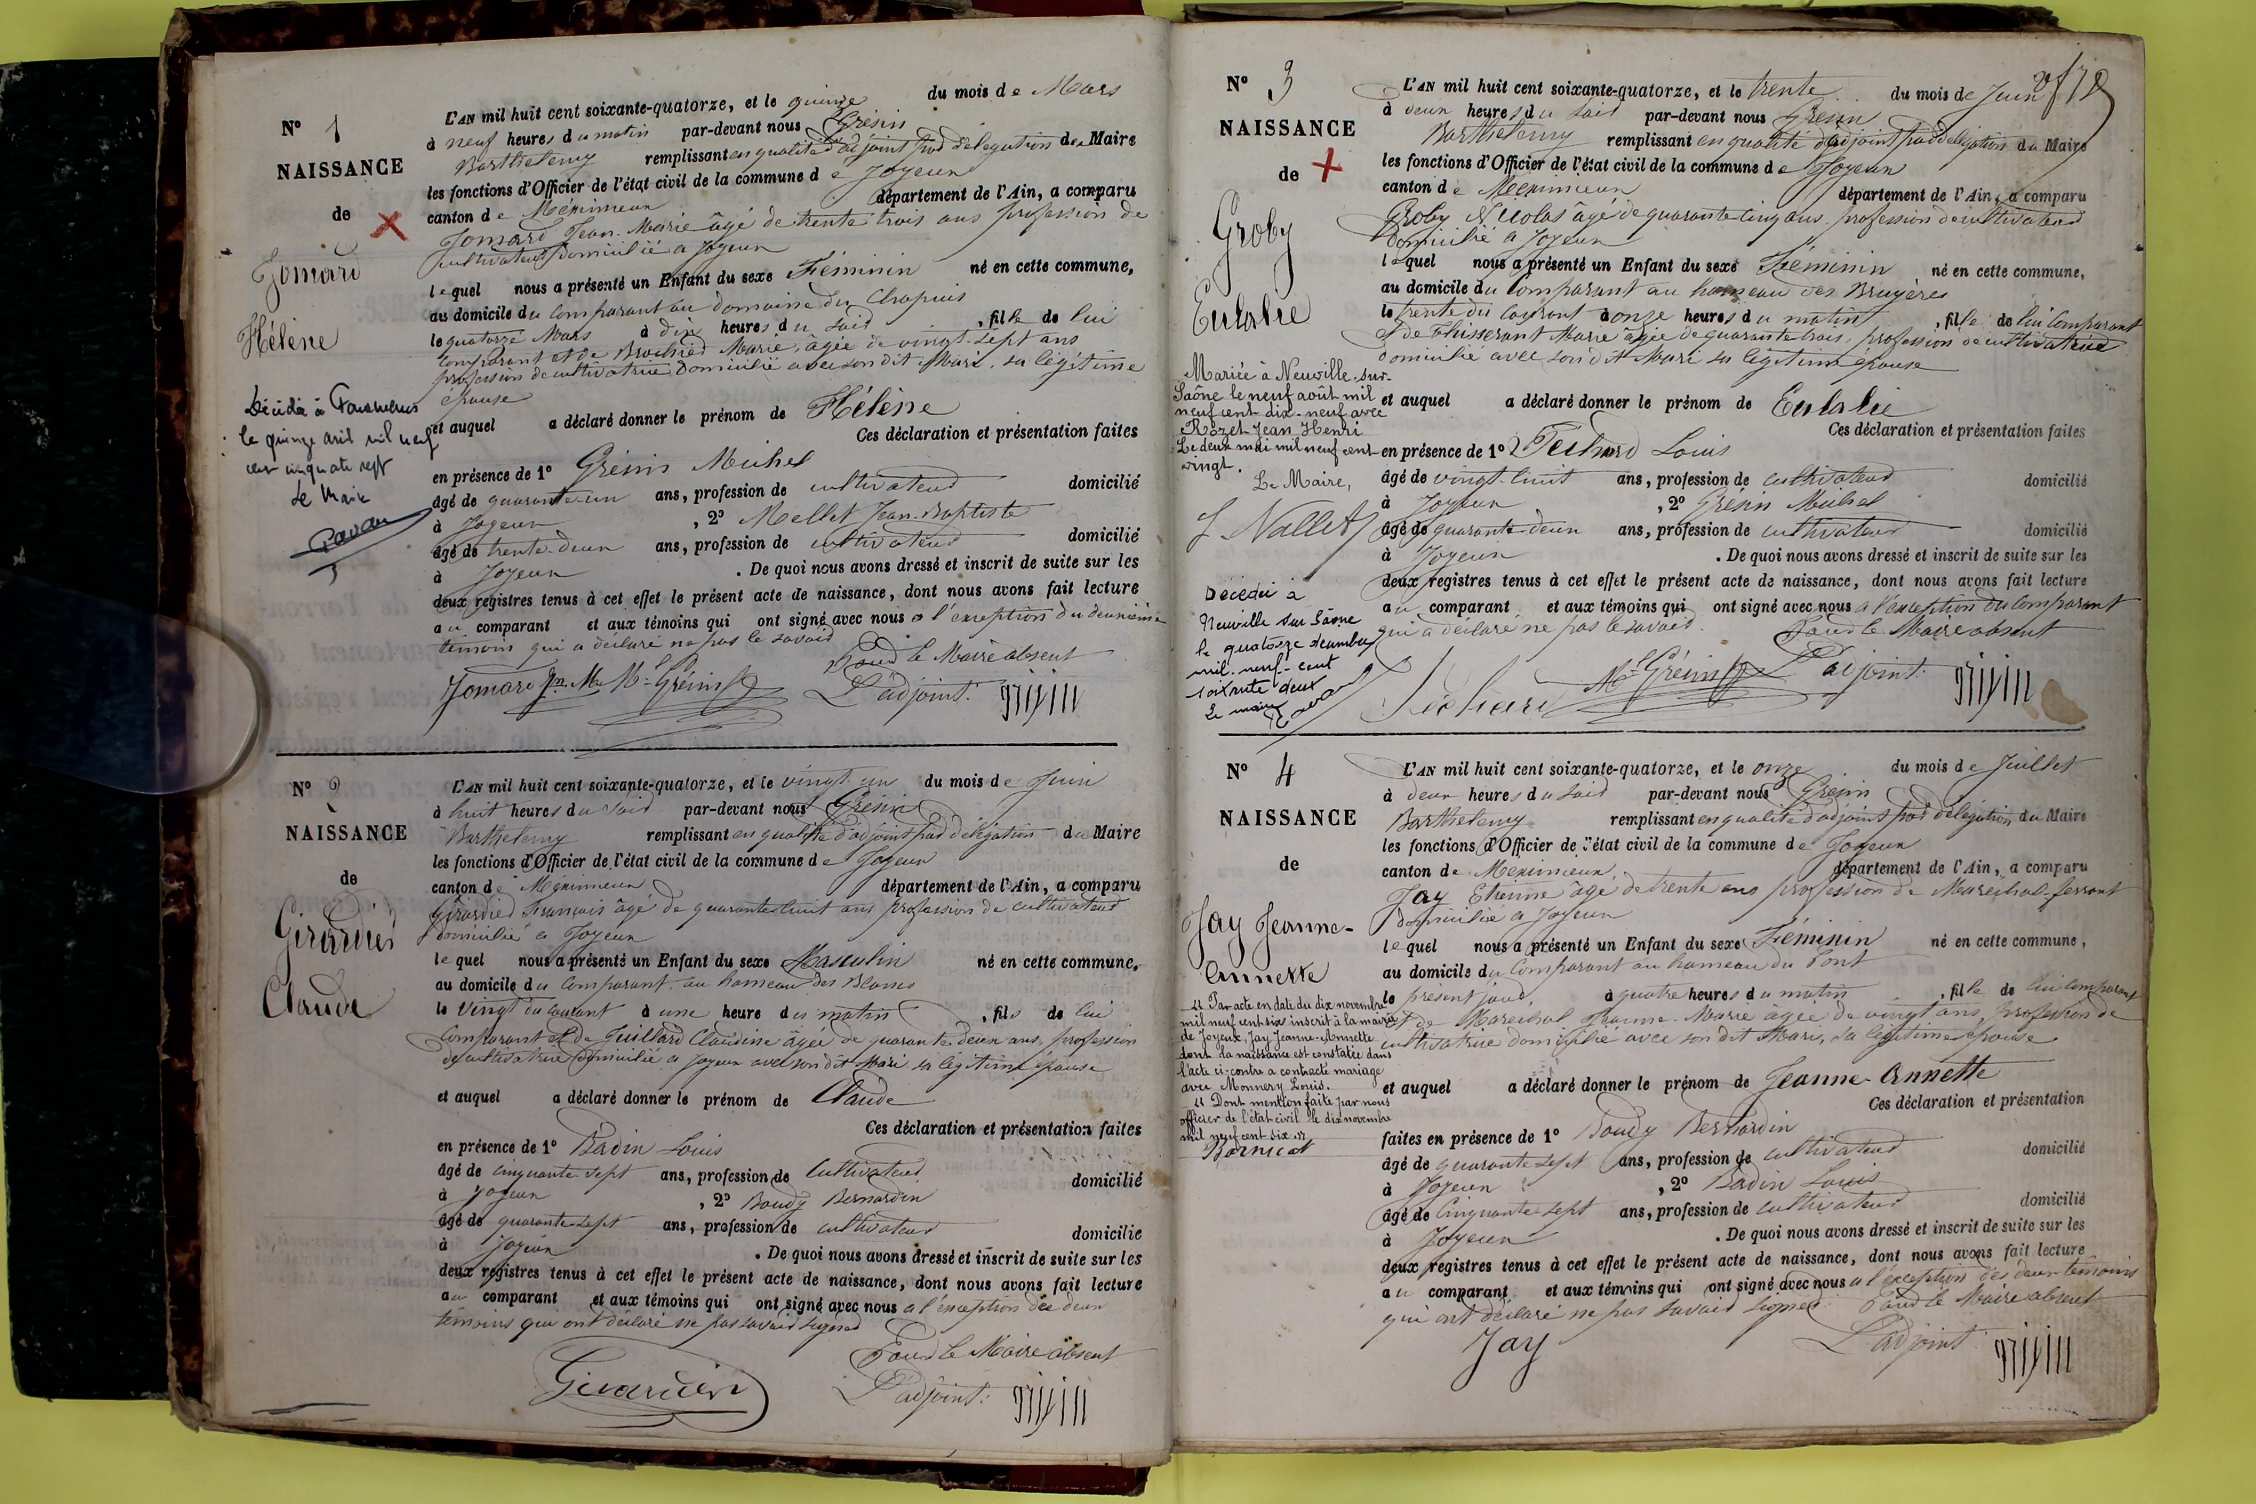 N° 1
NAISSANCE
de
Jomard
Hélène
Décédée à
le quinze avril mil neuf
cent cinquante sept
Le Maire
L'AN mil huit cent soixante-quatorze, et le quinze du mois de Mars
à neuf heures du matin par-devant nous Grénin
Barthelemy remplissant en qualité d'adjoint par délégation du Maire
les fonctions d'Officier de l'état civil de la commune de Joyeux
canton de Méximieux département de l'Ain, a comparu
Jomard Jean-Marie âgé de trente trois ans profession de
cultivateur domicilié a Joyeux
lequel nous a présenté un Enfant du sexe Féminin né en cette commune,
au domicile du comparant au domaine du Chapuis
le quatorze Mars à dix heures du soir, fille de lui
comparant et de Marie, agée de vingt-sept ans
profession de cultivatrice domicilié avec son dit Mari, sa légitime
épouse
et auquel a déclaré donner le prénom de Hélène
Ces déclaration et présentation faites
en présence de 1° Grénin Michel
âgé de quarante-un ans, profession de cultivateur domicilié
à Joyeux, 2° Mellet Jean-Baptiste
âgé de trente-deux ans, profession de cultivateur domicilié
à Joyeux. De quoi nous avons dressé et inscrit de suite sur les
deux registres tenus à cet effet le présent acte de naissance, dont nous avons fait lecture
au comparant et aux témoins qui ont signé avec nous a l'exception du deuxième
témoin qui a déclaré ne pas le savoir
Pour le Maire absent
Jomard Jn Me Mel Grénin L'adjoint:
N° 2
NAISSANCE
de
Girardier
Claude
L'AN mil huit cent soixante-quatorze, et le vingt-un du mois de Juin
à huit heures du soir par-devant nous Grénin
Barthelemy remplissant en qualité d'adjoint par délégation du Maire
les fonctions d'Officier de l'état civil de la commune de Joyeux
canton de Méximieux département de l'Ain, a comparu
Girardier François âgé de quarante-huit ans profession de cultivateur
domicilié a Joyeux
lequel nous a présenté un Enfant du sexe Masculin né en cette commune,
au domicile du comparant, au hameau des Blames
le Vingt du courant à une heure du matin, fils de lui
comparant et de Guillard Claudine âgée de quarante-deux ans, profession
de cultivatrice domicilié a Joyeux avec son dit Mari sa légitime épouse
et auquel a déclaré donner le prénom de Claude
Ces déclaration et présentation faites
en présence de 1° Badin Louis
âgé de cinquante sept ans, profession de Cultivateur domicilié
à Joyeux, 2° Boudy Bernardin
âgé de quarante-sept ans, profession de cultivateur domicilié
à Joyeux. De quoi nous avons dressé et inscrit de suite sur les
deux registres tenus à cet effet le présent acte de naissance, dont nous avons fait lecture
au comparant et aux témoins qui ont signé avec nous a l'exception des deux
témoins qui ont déclaré ne pas savoir signer
Pour le Maire absent
Girardier L'adjoint:
N° 3
NAISSANCE
de
Groby
Eulalie
Mariée à Neuville-sur-
Saône le neuf août mil
neuf cent dix-neuf avec
Rozet Jean Henri
Le deux mai mil neuf cent
vingt.
Le Maire,
J. Nallet
Décédée à
Neuville sur Saône
le quatorze décembre
mil-neuf-cent
soixante deux
Le maire
L'AN mil huit cent soixante-quatorze, et le trente du mois de Juin
à deux heures du soir par-devant nous Grénin
Barthelemy remplissant en qualité d'adjoint par délégation du Maire
les fonctions d'Officier de l'état civil de la commune de Joyeux
canton de Méximieux département de l'Ain, a comparu
Groby Nicolas âgé de quarante-cinq ans profession de cultivateur
domicilié a Joyeux
lequel nous a présenté un Enfant du sexe Féminin né en cette commune,
au domicile du comparant au hameau des Bruyères
le trente du courant à onze heures du matin, fille de lui comparant
et de Marie âgée de quarante trois, profession de cultivatrice
domicilié avec son dit Mari sa légitime épouse
et auquel a déclaré donner le prénom de Eulalie
Ces déclaration et présentation faites
en présence de 1° Louis
âgé de vingt-huit ans, profession de cultivateur domicilié
à Joyeux, 2° Grénin Michel
âgé de quarante-deux ans, profession de cultivateur domicilié
à Joyeux. De quoi nous avons dressé et inscrit de suite sur les
deux registres tenus à cet effet le présent acte de naissance, dont nous avons fait lecture
au comparant et aux témoins qui ont signé avec nous a l'exception du comparant
qui a déclaré ne pas le savoir. Pour le Maire absent
Mel Grénin L'adjoint:
N° 4
NAISSANCE
de
Jay Jeanne-
Annette
" Par acte en date du dix novembre
mil neuf cent six inscrit à la mairie
de Joyeux, Jay Jeanne-Annette
dont la naissance est constatée dans
l'acte ci-contre a contracté mariage
avec Monnery Louis.
" Dont mention faite par nous
officier de l'état civil le dix novembre
mil neuf cent six "
Bornicat
L'AN mil huit cent soixante-quatorze, et le onze du mois de Juillet
à deux heures du soir par-devant nous Grénin
Barthelemy remplissant en qualité d'adjoint par délégation du Maire
les fonctions d'Officier de l'état civil de la commune de Joyeux
canton de Meximieux, département de l'Ain, a comparu
Jay Etienne âgé de trente ans profession de Maréchal-ferrant
domicilié a Joyeux
lequel nous a présenté un Enfant du sexe Féminin né en cette commune,
au domicile du comparant au hameau du Pont
le présent jour, à quatre heures du matin, fille de lui comparant
et de Maréchal Jeanne-Marie âgée de vingt ans, profession de
cultivatrice domicilié avec son dit Mari, sa légitime épouse
et auquel a déclaré donner le prénom de Jeanne-Annette
Ces déclaration et présentation
faites en présence de 1° Boudy Bernardin
âgé de quarante-sept ans, profession de cultivateur domicilié
à Joyeux, 2° Badin Louis
âgé de Cinquante-sept ans, profession de cultivateur domicilié
à Joyeux. De quoi nous avons dressé et inscrit de suite sur les
deux registres tenus à cet effet le présent acte de naissance, dont nous avons fait lecture
au comparant et aux témoins qui ont signé avec nous a l'exception des deux témoins
qui ont déclaré ne pas savoir signer. Pour le Maire absent
Jay L'adjoint: